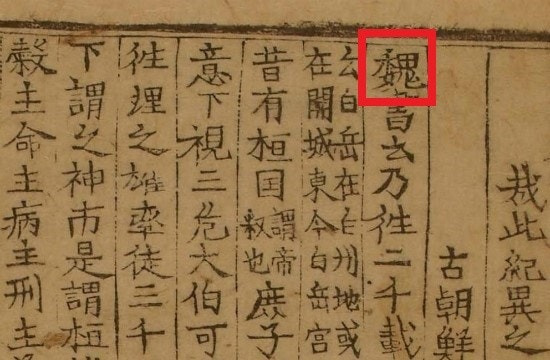 哉此紀異之
古朝鮮
魏書云乃徃二千載
云白岳在白州地或
在開城東今白岳宮
昔有桓国謂帝釋也庶子
意下視三危太伯可
徃理之雄率徒三千
下謂之神市是謂桓
糓主命主病主刑主